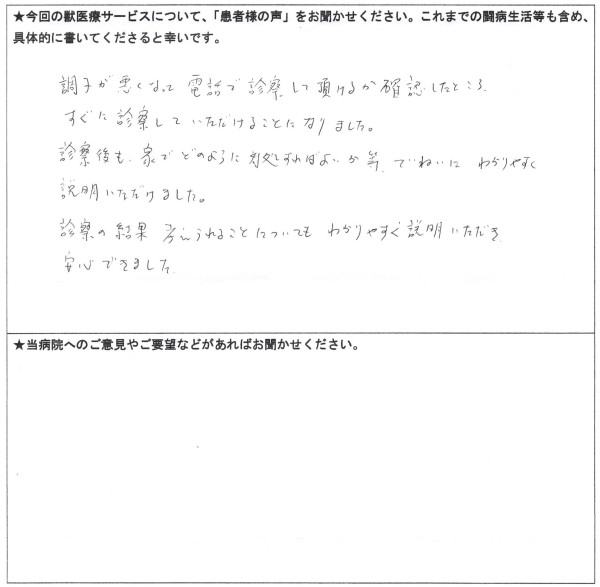 ★今回の獣医療サービスについて、「患者様の声」をお聞かせください。これまでの闘病生活等も含め、
具体的に書いてくださると幸いです。
調子が悪くなって電話で診察して頂けるか確認したところ
すぐに診察していただけることになりました。
診察後も、家でどのように対処すればよいか等、ていねいにわかりやすく
説明いただけました。
診察の結果考えられることについてもわかりやすく説明いただき
安心できました
★当病院へのご意見やご要望などがあればお聞かせください。